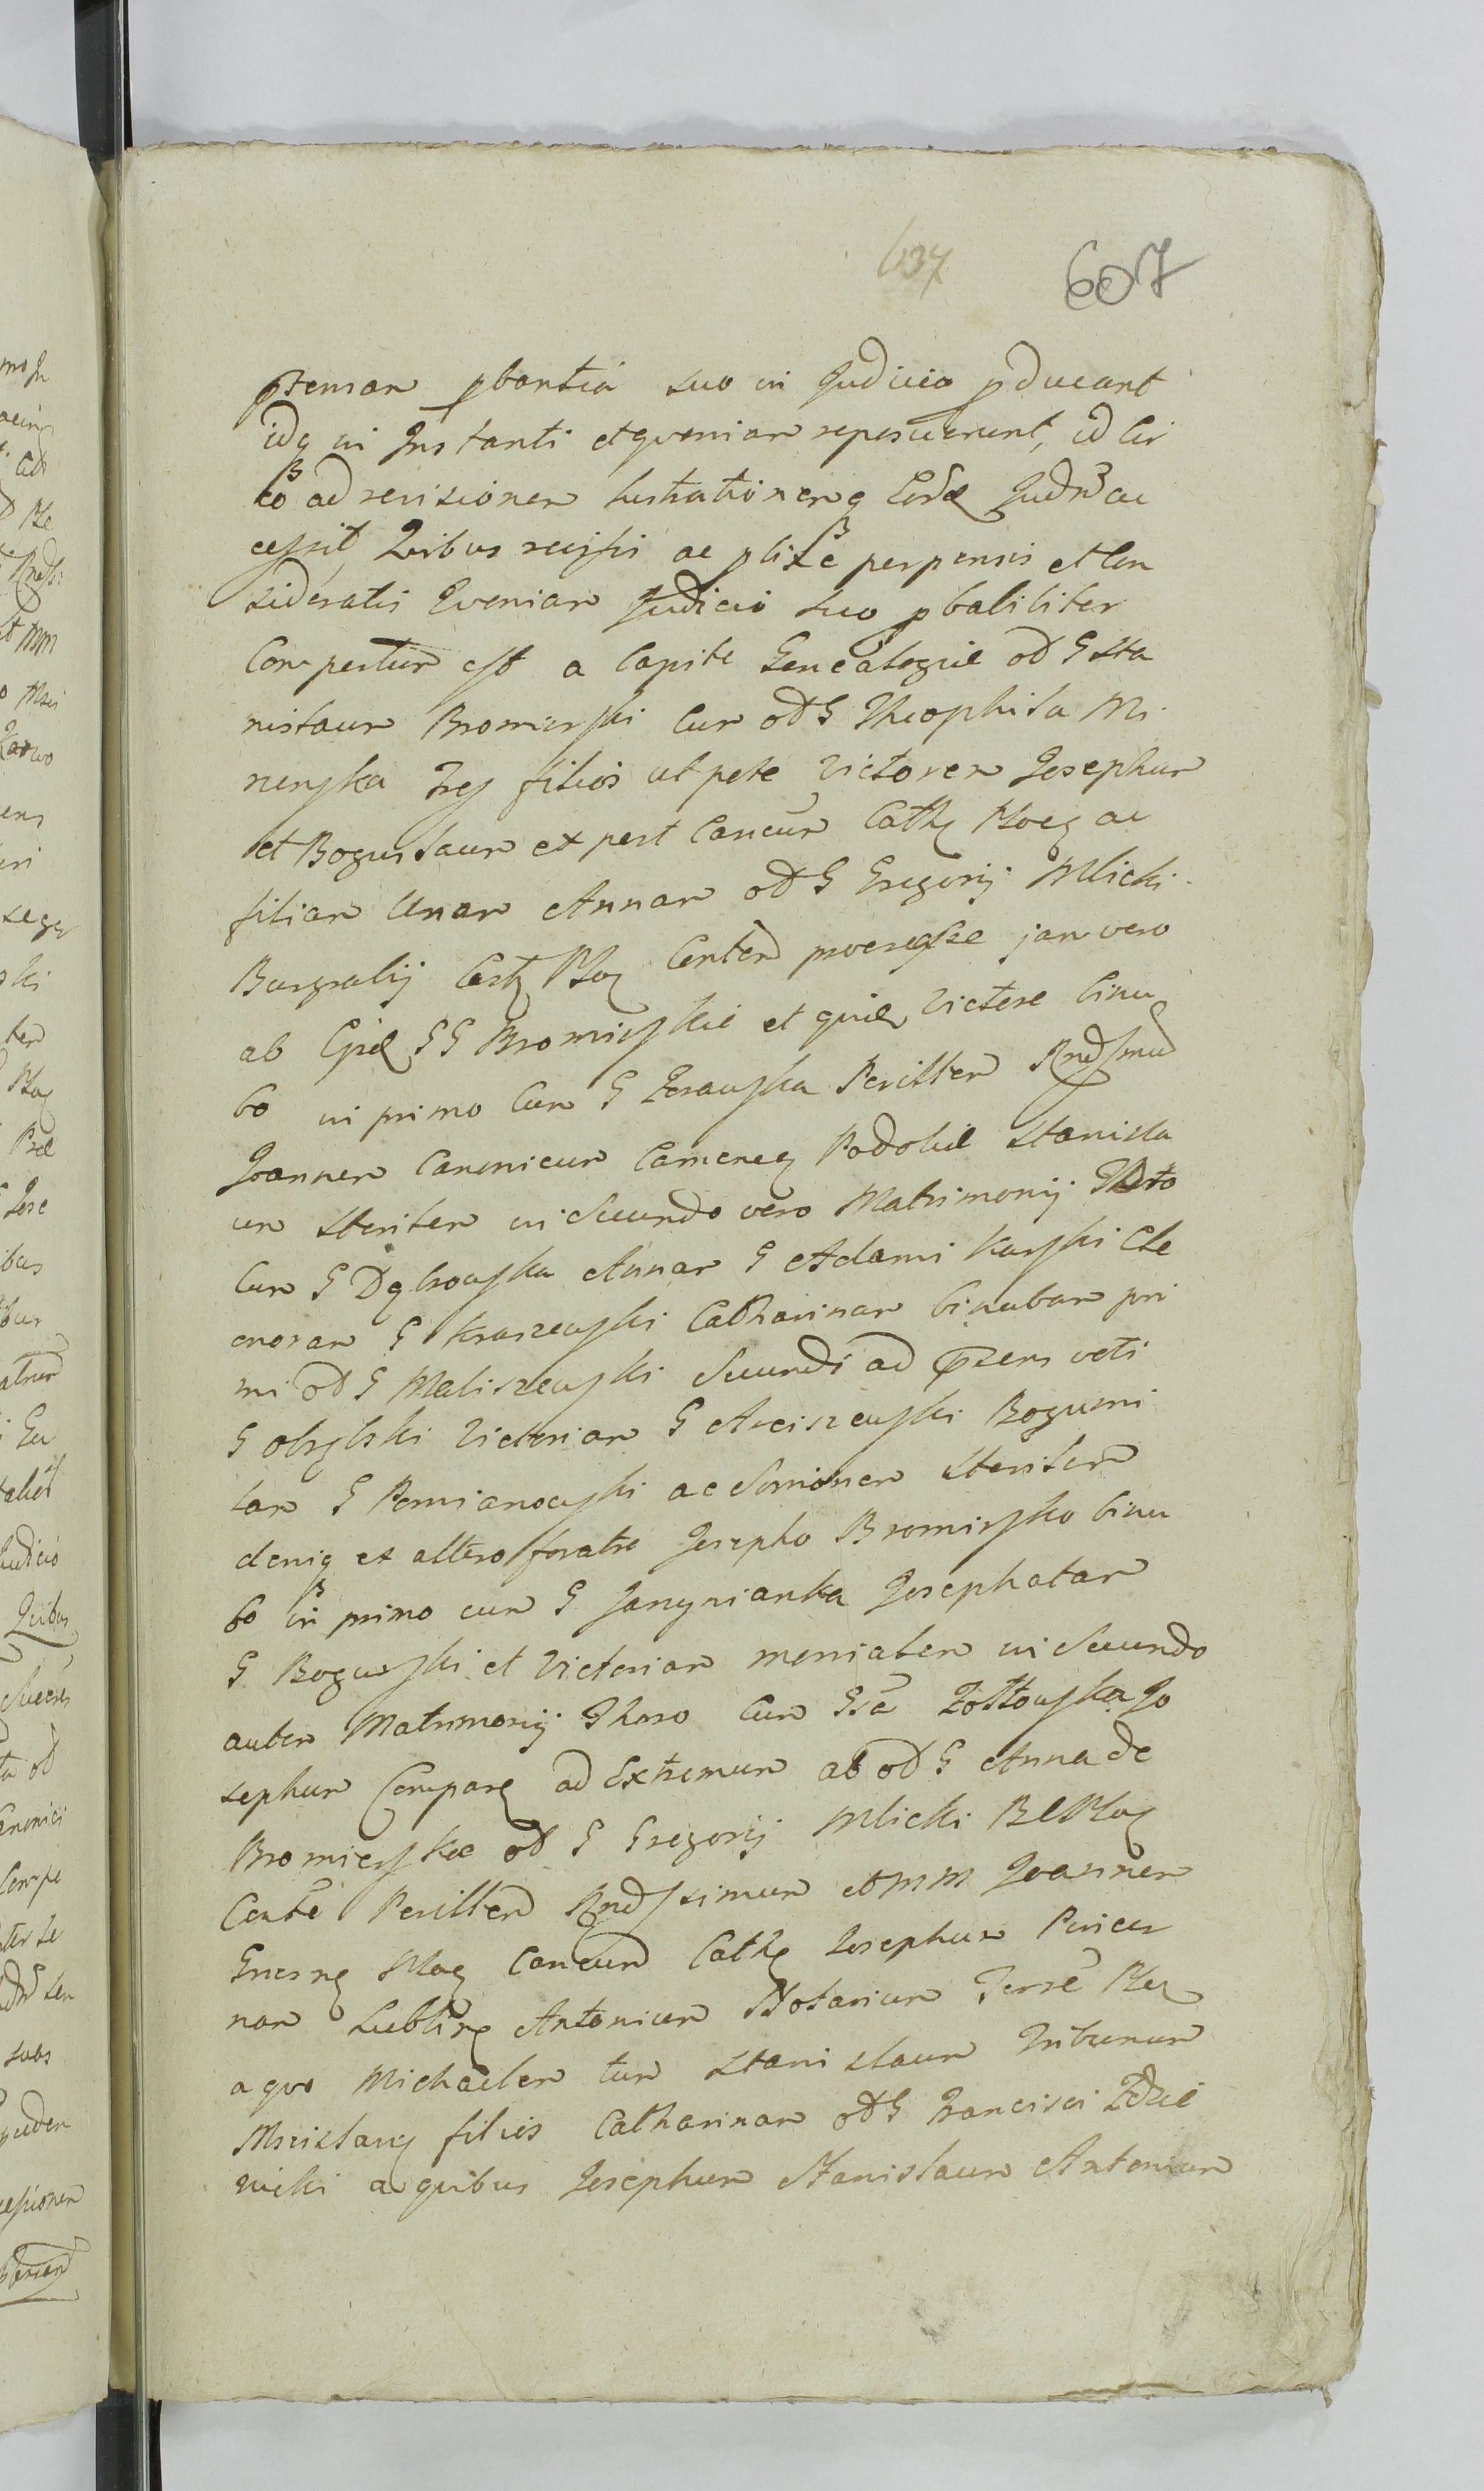 637 607
pzensar pbantia suo in Judicio pducant
idq in Instanti etqvoniam reposuerunt, id cir
co ad revisionem lustrationemq Judm ac
cessit, Qvibus revisis ac plixe perpensis et con
sideratis Qvoniam Judicio suo pbabiliter
Compertum est a Capite Genealogiæ od G Sta
nislaum Bromirski cum od G Theophila Mi
nenska Tres filios utpote Victorem Josephum
et Boguslaum ex post Cancum Cathg Plocg ac
filiam Unam Annam od G Gregorij Mlicki
Burgrabij Castg Plog Contem processisse jam vero
ab GG Bromirskie et qvide Victore binu
bo in primo Cum G Zerawska Perillrem Rndssmum
Joannem Canonicum Cameneg Podoliæ Stanisla
um Steritem in Secundo vero Matrimonij Thoro
Cum G Dąbrowska Annam G Adami Karski Ele
onoram G Kraszewski Catharinam binubam pri
mi od G Maliszewski Secundi ad pzens voti
G Obrębski Victoriam G Arciszewski Bogumi
lam G Pomianowski ac Simonem Sterilem
deniq ex altero fratre Josepho Bromirsko binu
bo in primo cum G Janynianka Josephatam
G Bogurski et Victoriam monialem in Secundo
autem Matrimonij Thoro Cum Gsa Zołtowska Jo
sephum Comparg ad Extremum ab od G Anna de
Bromirskie od G Gregorij Mlicki BCPlog
Conte Perillrem Rndssimum et MM Joannem
Gnesng Plog Cancum Cathg Josephum Pincer
nam Subling Antonium Notarium Terræ Plog
a qvo Michaelem tum Stanislaum Tribunum
Mscislavg filios Catharinam od G Francisci Zdzie
nicki a qvibus Josephum Stanislaum Antonium